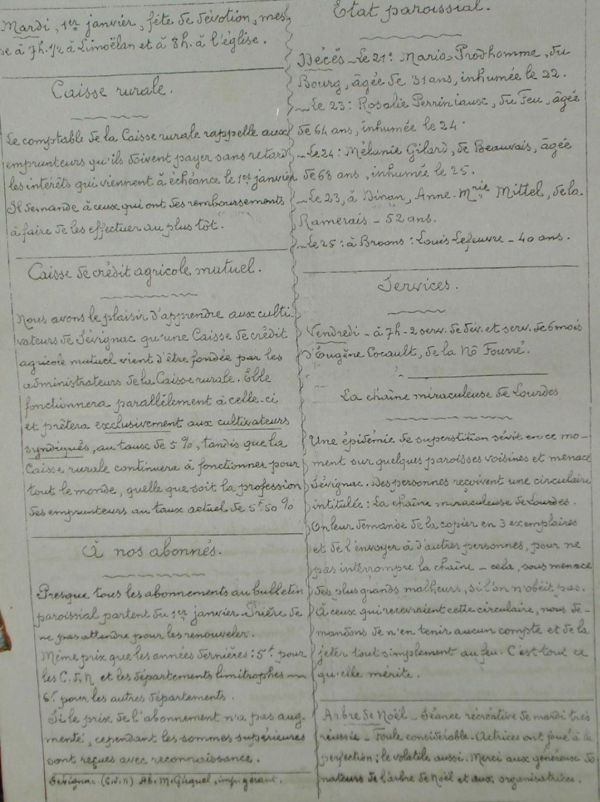 Mardi, 1er janvier, fête de dévotion, mes-
se à 7h.1/2 à Limoëlan et à 8h. à l'église.
Caisse rurale.
Le comptable de la Caisse rurale rappelle aux
emprunteurs qu'ils doivent payer sans retard
les intérêts qui viennent à échéance le 1er janvier
Il demande à ceux qui ont des remboursements
à faire de les effectuer au plus tôt.
Caisse de crédit agricole mutuel.
Nous avons le plaisir d'apprendre aux culti-
vateurs de Sévignac qu'une Caisse de crédit
agricole mutuel vient d'être fondée par les
administrateurs de la Caisse rurale. Elle
fonctionnera parallèlement à celle-ci
et prêtera exclusivement aux cultivateurs
syndiqués, au taux de 5%, tandis que la
Caisse rurale continuera à fonctionner pour
tout le monde, quelle que soit la profession
des emprunteurs au taux actuel de 5f50 %
À nos abonnés.
Presque tous les abonnements au bulletin
paroissial partent du 1er janvier. Prière de
ne pas attendre pour les renouveler.
Même prix que les années dernières: 5f pour
les C.d.N et les départements limitrophes —
6f pour les autres départements.
Si le prix de l'abonnement n'a pas aug-
menté, cependant les sommes supérieures
sont reçues avec reconnaissance.
Sévignac (C.d.N) Ab. M. Gicquel, imp. gérant.
Etat paroissial.
Décès - Le 21: Maria Prodhomme, du
Bourg, âgée de 31 ans, inhumée le 22.
- Le 23: Rosalie Perriniaux, du Feu, âgée
de 64 ans, inhumée le 24.
- Le 24: Mélanie Gilard, de Beauvais, âgée
de 68 ans, inhumée le 25.
- Le 23, à Dinan, Anne-Mrie Mittel, de la
Ramerais - 52 ans.
- Le 25: à Broons: Louis Lefeuvre - 40 ans.
Services.
Vendredi - à 7h - 2 serv. de dév. et serv. de 6 mois
d'Eugène Cocault, de la Nô Fourré.
La chaîne miraculeuse de Lourdes
Une épidémie de superstition sévit en ce mo-
ment sur quelques paroisses voisines et menace
Sévignac. Des personnes reçoivent une circulaire
intitulés: La chaîne miraculeuse de Lourdes.
On leur demande de la copier en 3 exemplaires
et de l'envoyer à d'autres personnes, pour ne
pas interrompre la chaîne - cela, sous menace
des plus grands malheurs, si l'on n'obéit pas.
À ceux qui recevraient cette circulaire, nous de-
mandons de n'en tenir aucun compte et de la
jeter tout simplement au feu. C'est tout ce
qu'elle mérite.
Arbre de Noël - Séance récréative de mardi très
réussie - Foule considérable. Actrices ont joué à la
perfection; le volatile aussi. Merci aux généreux do-
nateurs de l'arbre de Noël et aux organisatrices.